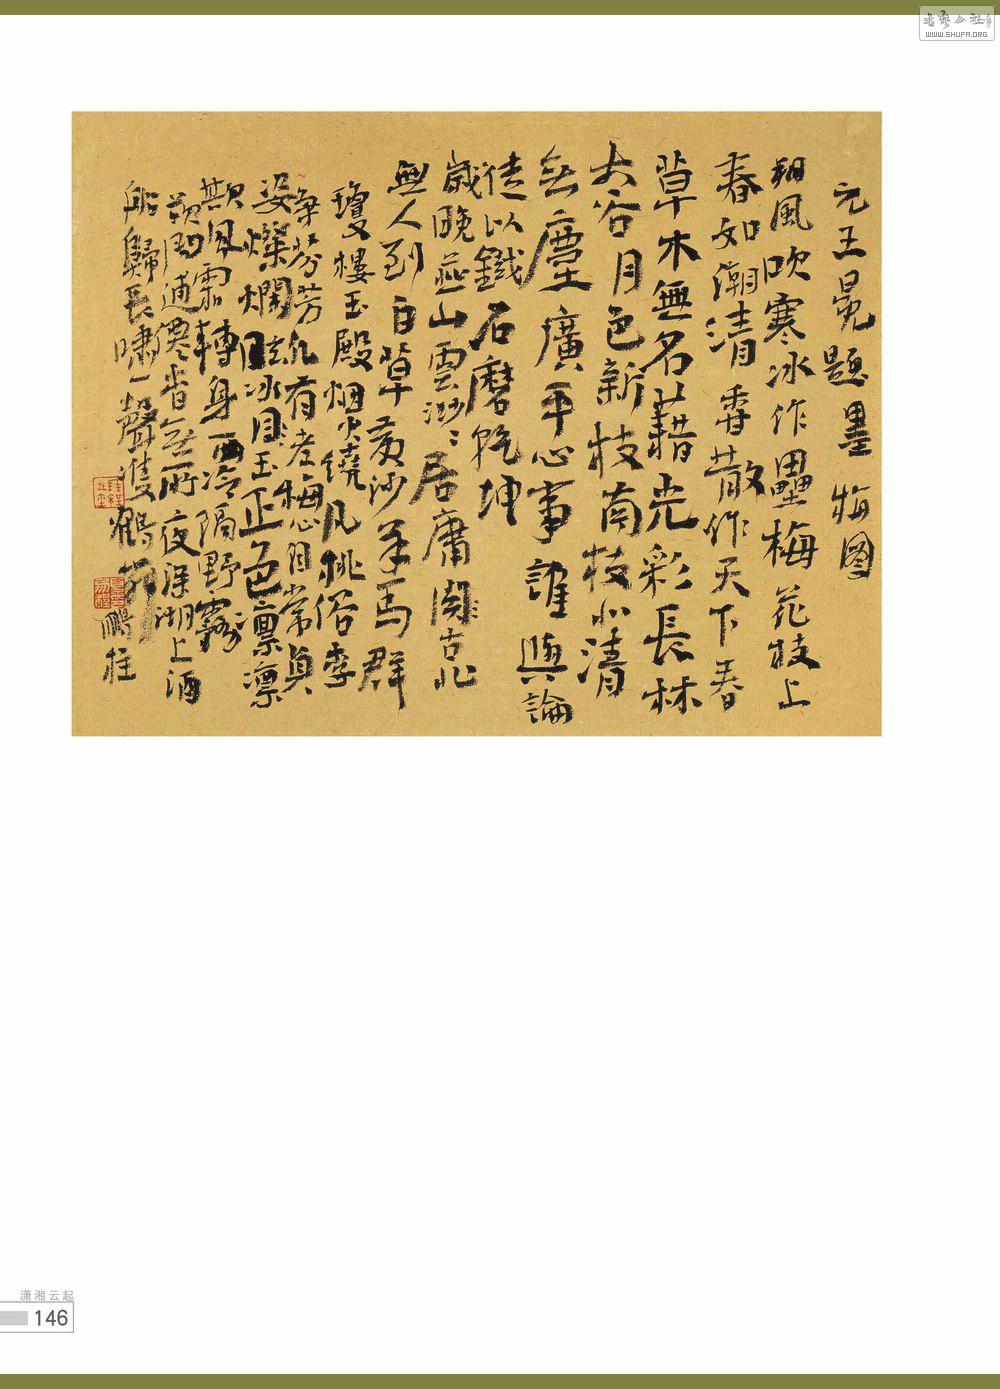 书艺公社
WWW.SHUFA.ORG
元王冕題墨梅圖
朔風吹寒冰作壘梅花枝上
春如潮清香散作天下春
草木無名藉光彩長林
大谷月色新枝南枝北清
無塵廣平心事誰與論
徒以鐵石磨乾坤
歲晚燕山雲渺渺居庸關古北
無人到白草黃沙羊馬群
瓊樓玉殿烟火繞凡桃俗李
爭芬芳只有老梅心自常貞
姿燦爛眩冰月玉正色凛凛
欺風霜轉身西泠隔野霧
欲問逋僊杳無所夜深湖上酒
船歸長嘯一聲隻鶴舞
鵬柱
潇湘云起
146